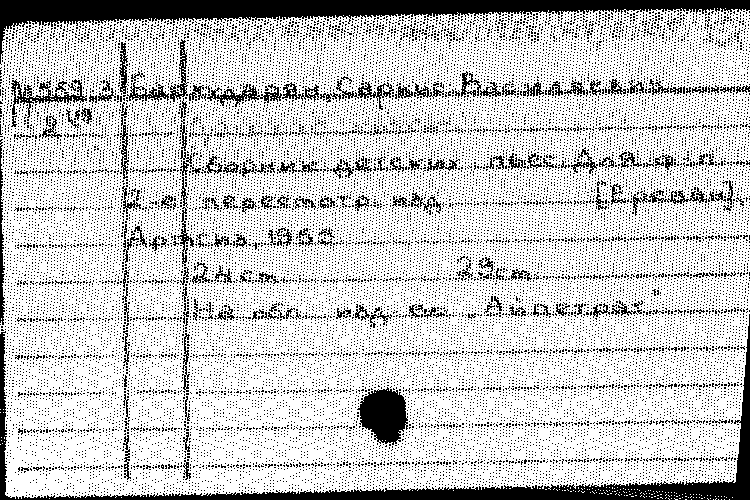 № 569 3 Бархударян, Саркис Васильевич
П 2
Сборник детских пьес. Для ф-п.
2-е пересмотр. изд. [Ереван],
Армгиз, 1955
24 ст. 29 см.
На обл. изд-во „Айпетрат"